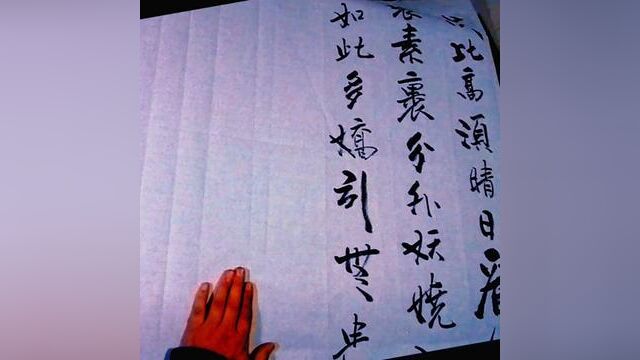 比高須晴日看
素裹分外妖嬈
如此多嬌引無